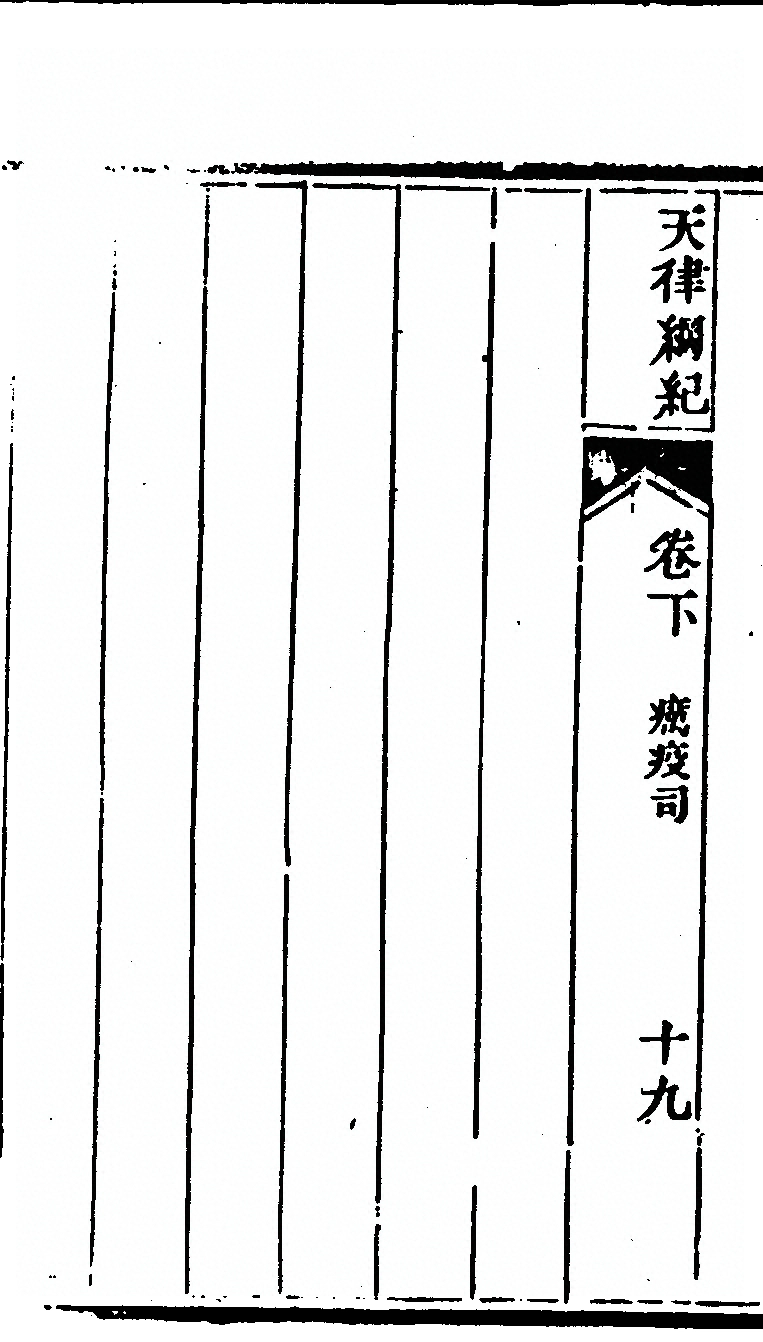 天律綱紀
卷下
瘟疫司
十九